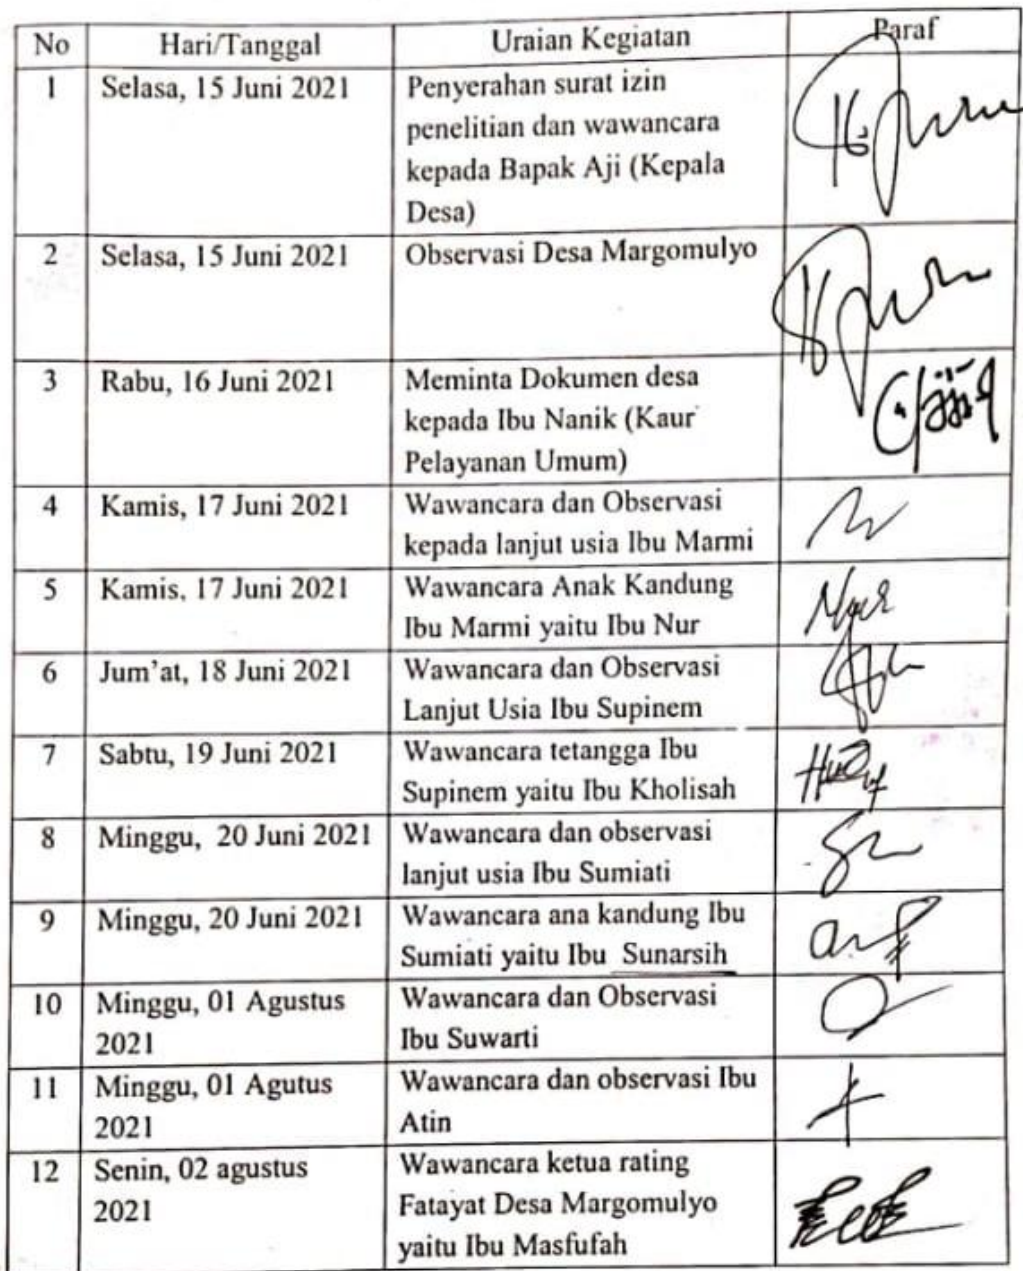 No Hari/Tanggal Uraian Kegiatan Paraf
1 Selasa, 15 Juni 2021 Penyerahan surat izin
penelitian dan wawancara
kepada Bapak Aji (Kepala
Desa)
2 Selasa, 15 Juni 2021 Observasi Desa Margomulyo
3 Rabu, 16 Juni 2021 Meminta Dokumen desa
kepada Ibu Nanik (Kaur
Pelayanan Umum)
4 Kamis, 17 Juni 2021 Wawancara dan Observasi
kepada lanjut usia Ibu Marmi
5 Kamis, 17 Juni 2021 Wawancara Anak Kandung
Ibu Marmi yaitu Ibu Nur
6 Jum'at, 18 Juni 2021 Wawancara dan Observasi
Lanjut Usia Ibu Supinem
7 Sabtu, 19 Juni 2021 Wawancara tetangga Ibu
Supinem yaitu Ibu Kholisah
8 Minggu, 20 Juni 2021 Wawancara dan observasi
lanjut usia Ibu Sumiati
9 Minggu, 20 Juni 2021 Wawancara ana kandung Ibu
Sumiati yaitu Ibu Sunarsih
10 Minggu, 01 Agustus Wawancara dan Observasi
2021 Ibu Suwarti
11 Minggu, 01 Agutus Wawancara dan observasi Ibu
2021 Atin
12 Senin, 02 agustus Wawancara ketua rating
2021 Fatayat Desa Margomulyo
yaitu Ibu Masfufah